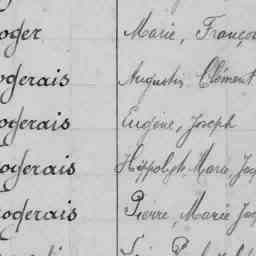 oger Marie, Franço
ogerais Augustin Clément
ogerais Eugène, Joseph
ogerais Hippolyte, Marie, Jac
ogerais Pierre, Marie Jac